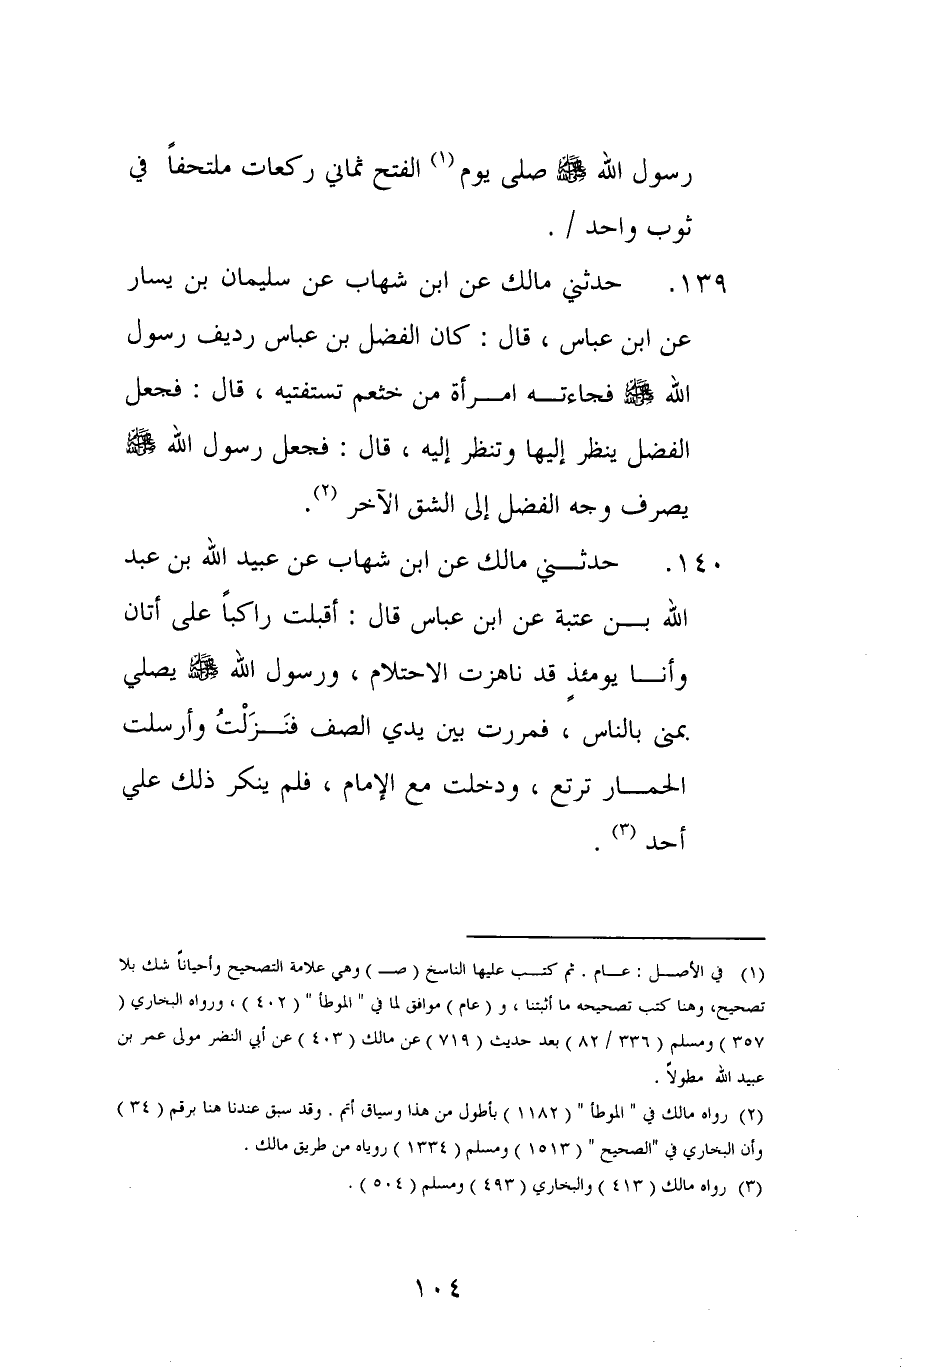 رسول الله ﷺ صلى يوم (١) الفتح ثماني ركعات ملتحفاً في
ثوب واحد / .
١٣٩. حدثني مالك عن ابن شهاب عن سليمان بن يسار
عن ابن عباس ، قال : كان الفضل بن عباس رديف رسول
الله ﷺ فجاءتـــه امـــرأة من خثعم تستفتيه ، قال : فجعل
الفضل ينظر إليها وتنظر إليه ، قال : فجعل رسول الله ﷺ
يصرف وجه الفضل إلى الشق الآخر (٢).
١٤٠. حدثـــني مالك عن ابن شهاب عن عبيد الله بن عبد
الله بـــن عتبة عن ابن عباس قال : أقبلت راكباً على أتان
وأنـــا يومئذٍ قد ناهزت الاحتلام ، ورسول الله ﷺ يصلي
بمنى بالناس ، فمررت بين يدي الصف فنَـــزَلْتُ وأرسلت
الحمـــار ترتع ، ودخلت مع الإمام ، فلم ينكر ذلك علي
أحد (٣) .
(١) في الأصـــل : عـــام . ثم كتـــب عليها الناسخ ( صـ ) وهي علامة التصحيح وأحياناً شك بلا
تصحيح، وهنا كتب تصحيحه ما أثبتنا ، و ( عام ) موافق لما في " الموطأ " ( ٤٠٢ ) ، ورواه البخاري (
٣٥٧ ) ومسلم ( ٣٣٦ / ٨٢ ) بعد حديث ( ٧١٩ ) عن مالك ( ٤٠٣ ) عن أبي النضر مولى عمر بن
عبيد الله مطولاً .
(٢) رواه مالك في " الموطأ " ( ١١٨٢ ) بأطول من هذا وسياق أتم . وقد سبق عندنا هنا برقم ( ٣٤ )
وأن البخاري في "الصحيح " ( ١٥١٣ ) ومسلم ( ١٣٣٤ ) روياه من طريق مالك .
(٣) رواه مالك ( ٤١٣ ) والبخاري ( ٤٩٣ ) ومسلم ( ٥٠٤ ) .
١٠٤